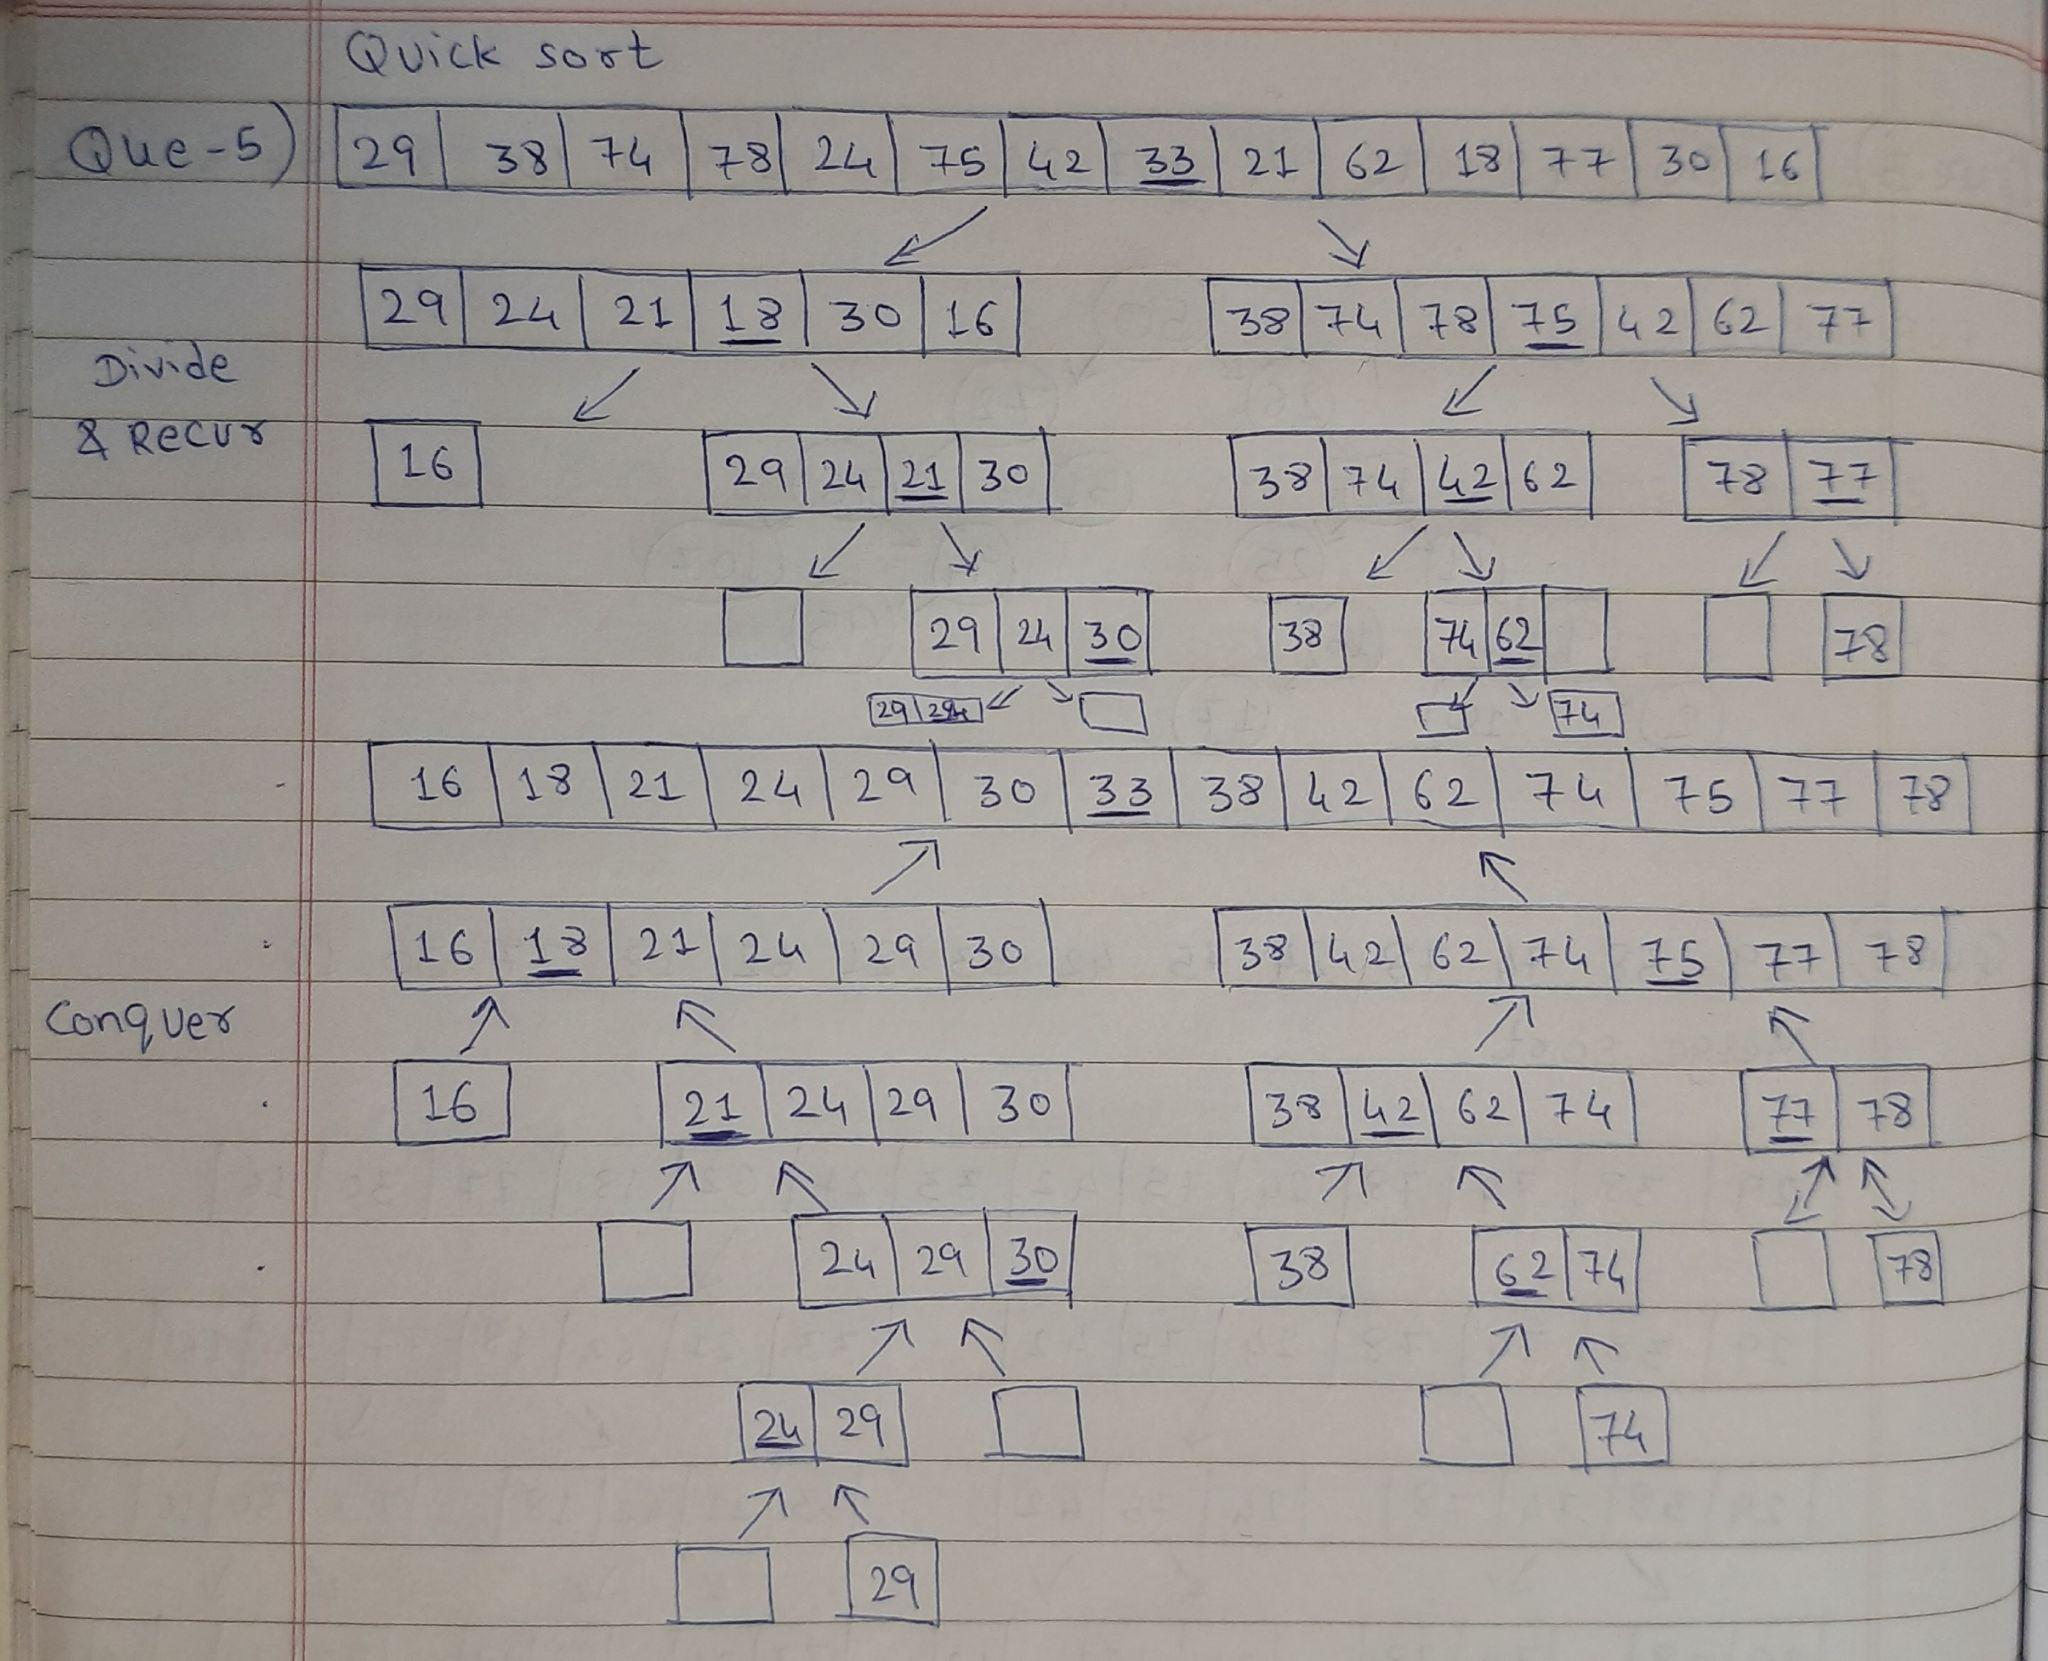 Quick sort
Que-5) 29 38 74 78 24 75 42 33 21 62 18 77 30 16
29 24 21 18 30 16 38 74 78 75 42 62 77
Divide
& Recur 16 29 24 21 30 38 74 42 62 78 77
29 24 30 38 74 62 78
29 24 74
16 18 21 24 29 30 33 38 42 62 74 75 77 78
16 18 21 24 29 30 38 42 62 74 75 77 78
Conquer
16 21 24 29 30 38 42 62 74 77 78
24 29 30 38 62 74 78
24 29 74
29